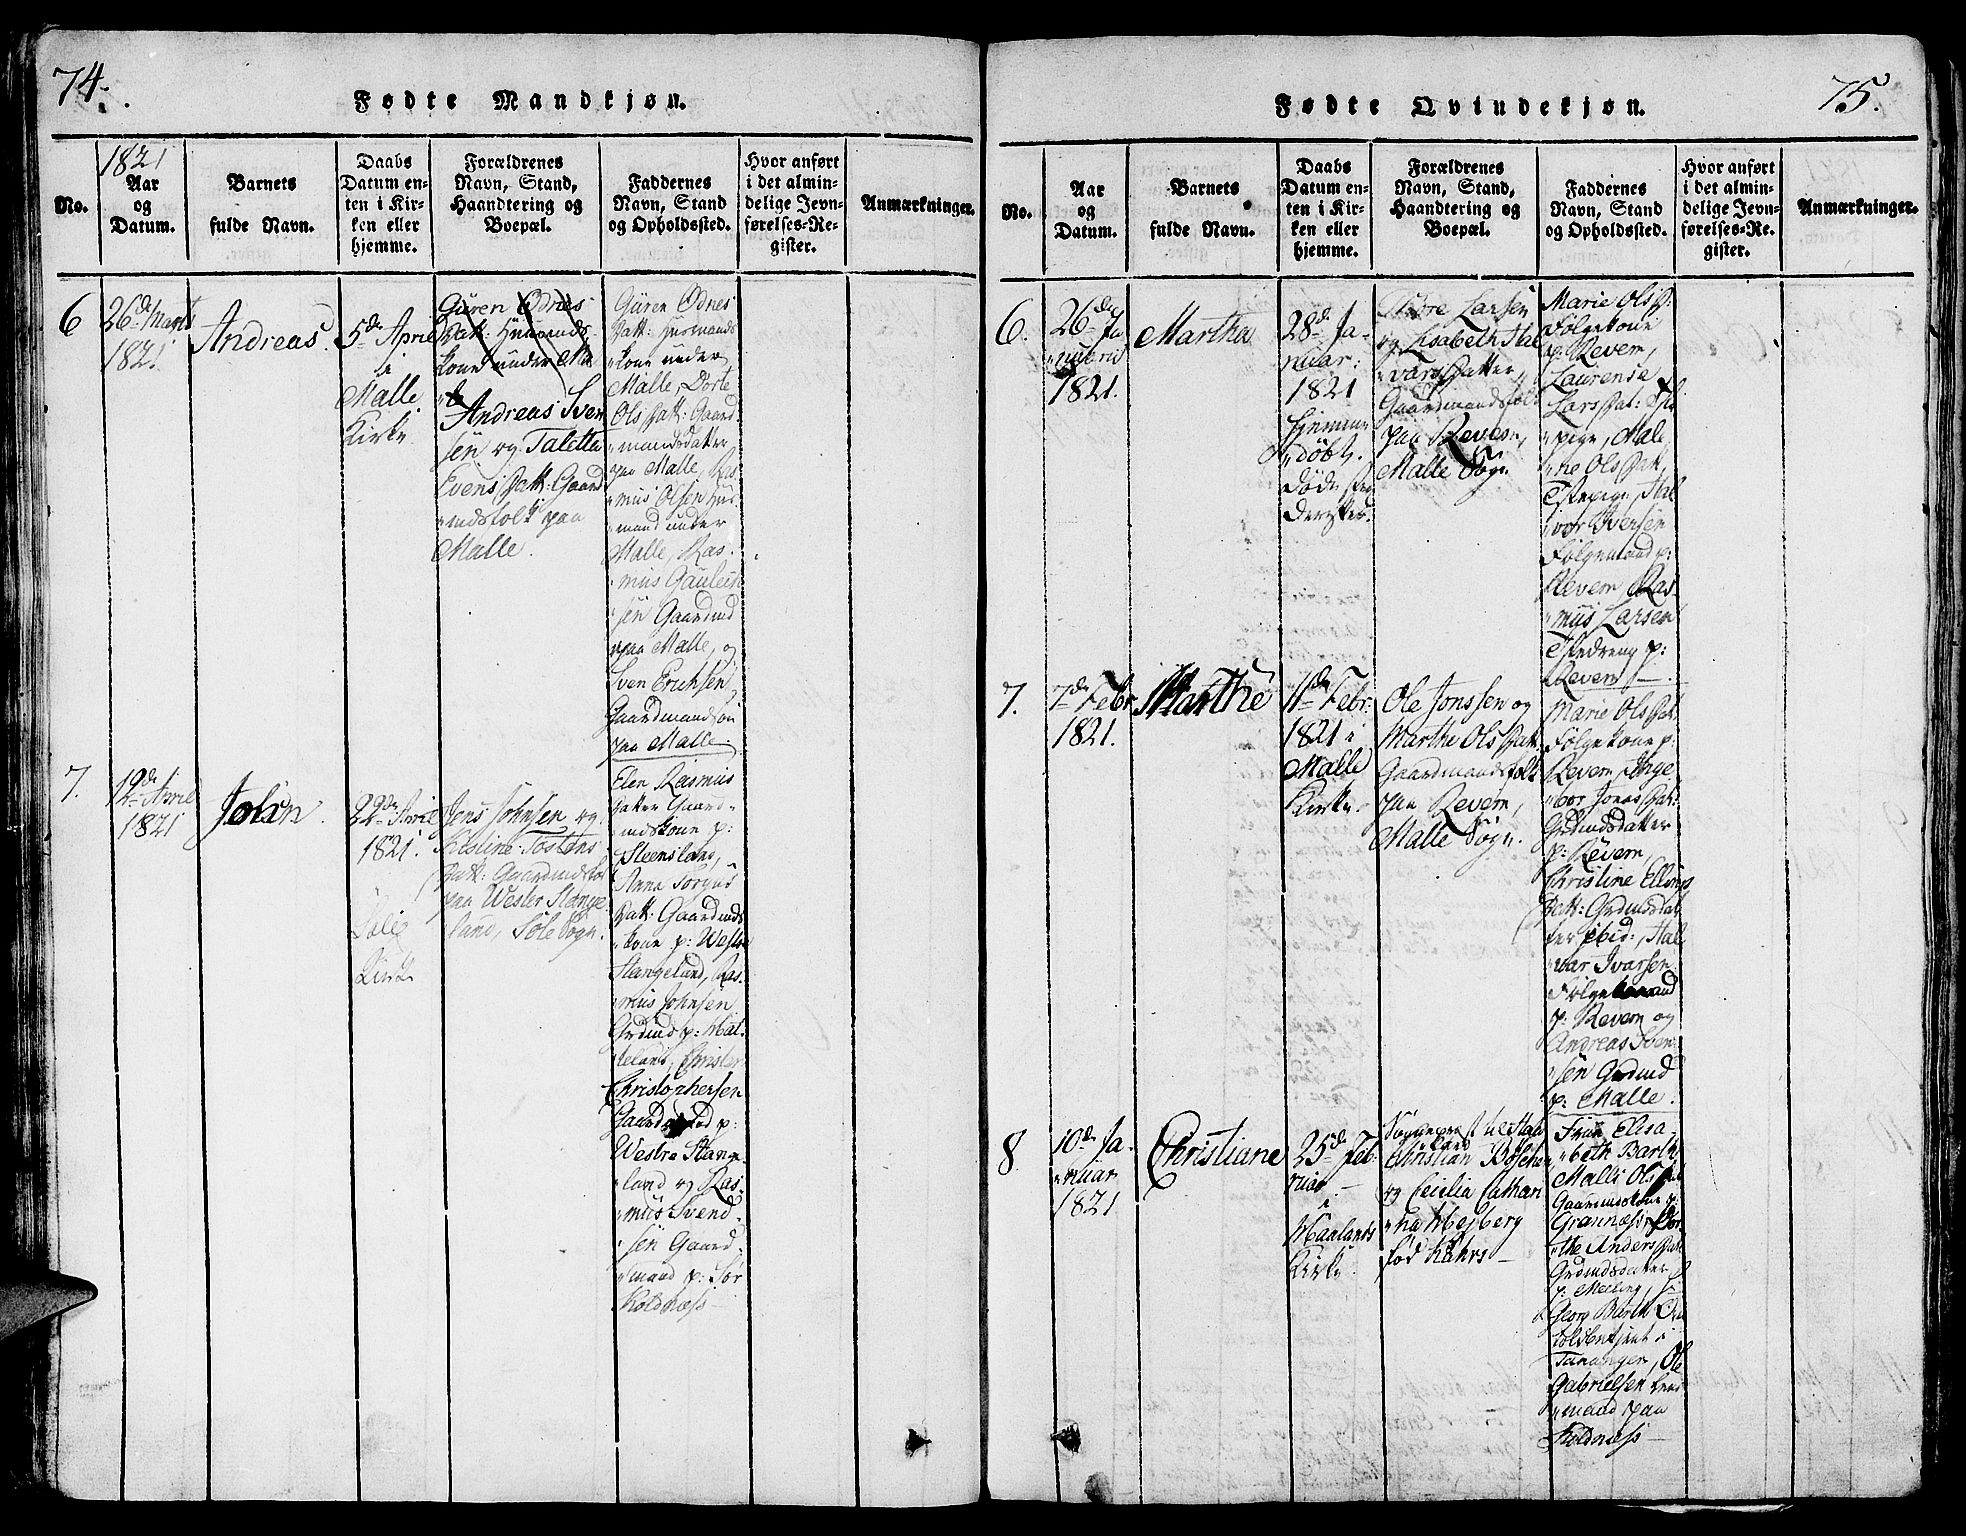 74.
Fødte Mandkjøn.
1821
No.
Aar
og
Datum.
Barnets
fulde Navn.
Daabs
Datum en-
ten i Kir-
ken eller
hjemme.
Forældrenes
Navn, Stand,
Haandtering og
Boepæl.
Faddernes
Navn, Stand
og Opholdssted.
Hvor anført
i det almin-
delige Jevn-
førelses-Re-
gister.
Anmærkninger.
6
26de Marts
1821.
Andreas.
5de April
i
Malle
Kirke
Guren Ednes
Datt: Huusmands
kone under Malle
Andreas Sven
sen og Taletta
Evens Datt: Gaard
mdsfolk paa
Malle.
Guren Ednes
Datt: Husmands
kone under
Malle, Dorte
Ols Datt: Gaard
mandsdatter
paa Malle, Ras
mus Olsen Hus
mand under
Malle, Ras
mus Gauless
sen Gaardmd
paa Malle, og
Sven Erichsen
Gaardmandssøn
paa Malle.
7.
12de April
1821
John
22de April
1821.
i
Sole
Kirke
Jens Johnsen og
Kistine Tostens
Datt: Gaardmdsfol
paa Wester Stange
land, Sole Sogn.
Elen Rasmus
Datter Gaard
mdskone p:
Steensland,
Anna Torgus
Datt: Gaardmds
kone p: Westre
Stangeland, Ras
mus Johnsen
Grdmd p: Mal
keland, Christen
Christophersen
Gaardmand p:
Westre Stange
land og Ras
mus Svend
sen Gaard
mand p: Sør
Koldnæss
75.
Fødte Qvindekjøn.
No.
Aar
og
Datum.
Barnets
fulde Navn.
Daabs
Datum en-
ten i Kir-
ken eller
hjemme.
Forældrenes
Navn, Stand,
Haandtering og
Boepæl.
Faddernes
Navn, Stand
og Opholdssted.
Hvor anført
i det almin-
delige Jevn-
førelses-Re-
gister.
Anmærkninger.
6.
26de Ja
nuarii
1821.
Martha
28de Ja-
nuar:
1821
Hjemme
døbt.
Døde
Larsen
og Lisabeth Hal
vars Datter,
Gaardmandsfolk
paa Revem,
Malle Sogn
Marie Ols D:
Følgekone
p: Revem,
Laurense
Lars Dat:
pige, Male
ne Ols Dat,
Hal
vor Iversen
Følgemand p:
Revem, Ras
mus Larsen
p:
Revem.
7.
7de Febr
1821.
Marthe
11de Febr:
1821 i
Malle
Kirke
Ole Jonssen og
Marthe Ols Datt
Gaardmandsfolk
paa Revem,
Malle Sogn.
Marie Ols Dat
Følgekone p:
Revem, Inge
bor Jonas Dat:
Grdmdsdatter
p: Revem,
Christine Ellings
Datt: Grdmdsdat
ter ibid:, Hal
var Ivarsen
Følgemand
p: Revem og
Andreas Sven
sen Grdmd
p: Malle.
8
10de Ja
nuar
1821
Christiane
25de Feb
ruar
i
Haalands
Kirke
Sognepræst til Haa
land
Christian
og Cecilia Cathari
na Mejberg
fød Kahrs
Frue Elisa
beth Barth
Malli Ols Dat
Gaardmdskone p:
Grannæss, Dor
the Anders Dat
Grdmdsdatter
p: Melling,
Georg Barth
toldbetjent i
Tananger, Ole
Gabrielsen
mand paa
Koldnæss